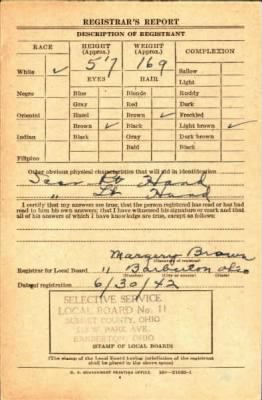 REGISTRAR'S REPORT
DESCRIPTION OF REGISTRANT
RACE HEIGHT (Approx.) WEIGHT (Approx.) COMPLEXION
5'7 169
White ✓ Sallow
EYES HAIR Light
Negro Blue Blonde Ruddy
Gray Red Dark
Oriental Hazel Brown ✓ Freckled
Brown ✓ Black Light brown ✓
Indian Black Gray Dark brown
Bald Black
Filipino
Other obvious physical characteristics that will aid in identification
Scar Rt Hand
" Lt Hand
I certify that my answers are true; that the person registered has read or has had
read to him his own answers; that I have witnessed his signature or mark and that
all of his answers of which I have knowledge are true, except as follows:
Margery Brown
(Signature of registrar)
Registrar for Local Board 11 Barberton Ohio
(Number) (City or county) (State)
Date of registration 6/30/42
SELECTIVE SERVICE
LOCAL BOARD No. 11
SUMMIT COUNTY, OHIO
W. PARK AVE.
BARBERTON, OHIO
(STAMP OF LOCAL BOARD)
(The stamp of the Local Board having jurisdiction of the registrant
shall be placed in the above space.)
U. S. GOVERNMENT PRINTING OFFICE